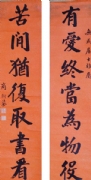 有愛終當為物役
苦閒猶復取書看